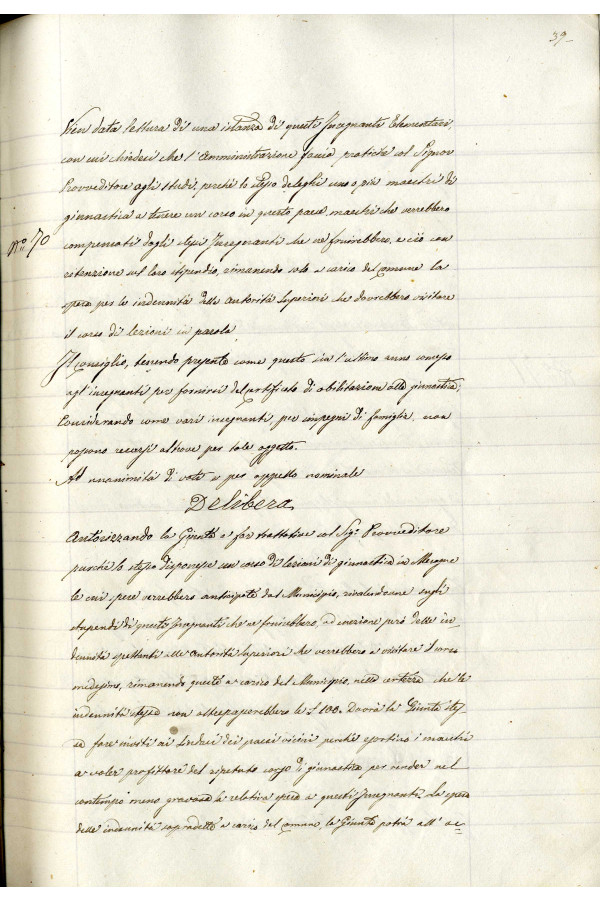 39
Vien data lettura di una istanza di questi Insegnanti Elementari,
con cui chiedesi che l'Amministrazione faccia pratiche col Signor
Provveditore agli studi, perchè lo stesso deleghi uno o più maestri di
ginnastica a tenere un corso in questo paese, maestri che verrebbero
N.° 70
compensati dagli stessi Insegnanti che ne fruirebbero, e ciò con
ritenzione sul loro stipendio, rimanendo solo a carico del Comune la
spesa per le indennità delle autorità Superiori che dovrebbero visitare
il corso di lezioni in parola
Il Consiglio, tenendo presente come questo sia l'ultimo anno concesso
agl'insegnanti per fornirsi del certificato di abilitazione alla ginnastica;
Considerando come vari insegnanti, per impegni di famiglia, non
possono recarsi altrove per tale oggetto.
Ad unanimità di voti e per appello nominale
Delibera
Autorizzando la Giunta a far trattative col Sig.r Provveditore
purchè lo stesso disponesse un corso di lezioni di ginnastica in
le cui spese verrebbero anticipate dal Municipio, rivalendosene sugli
stipendi di questi Insegnanti che ne fruirebbero, ad eccezione però delle in-
dennità spettanti alle autorità Superiori che verrebbero a visitare il corso
medesimo, rimanendo queste a carico del Municipio, nella certezza che le
indennità stesse non oltrepasserebbero le £ 100. Dovrà la Giunta stes-
sa fare inviti ai Sindaci dei paesi vicini perchè i maestri
a voler profittare del ripetuto corso di ginnastica per render nel
contempo meno gravosa la relativa spesa a questi Insegnanti. La spesa
delle indennità sopradette a carico del Comune, la Giunta potrà all'oc=